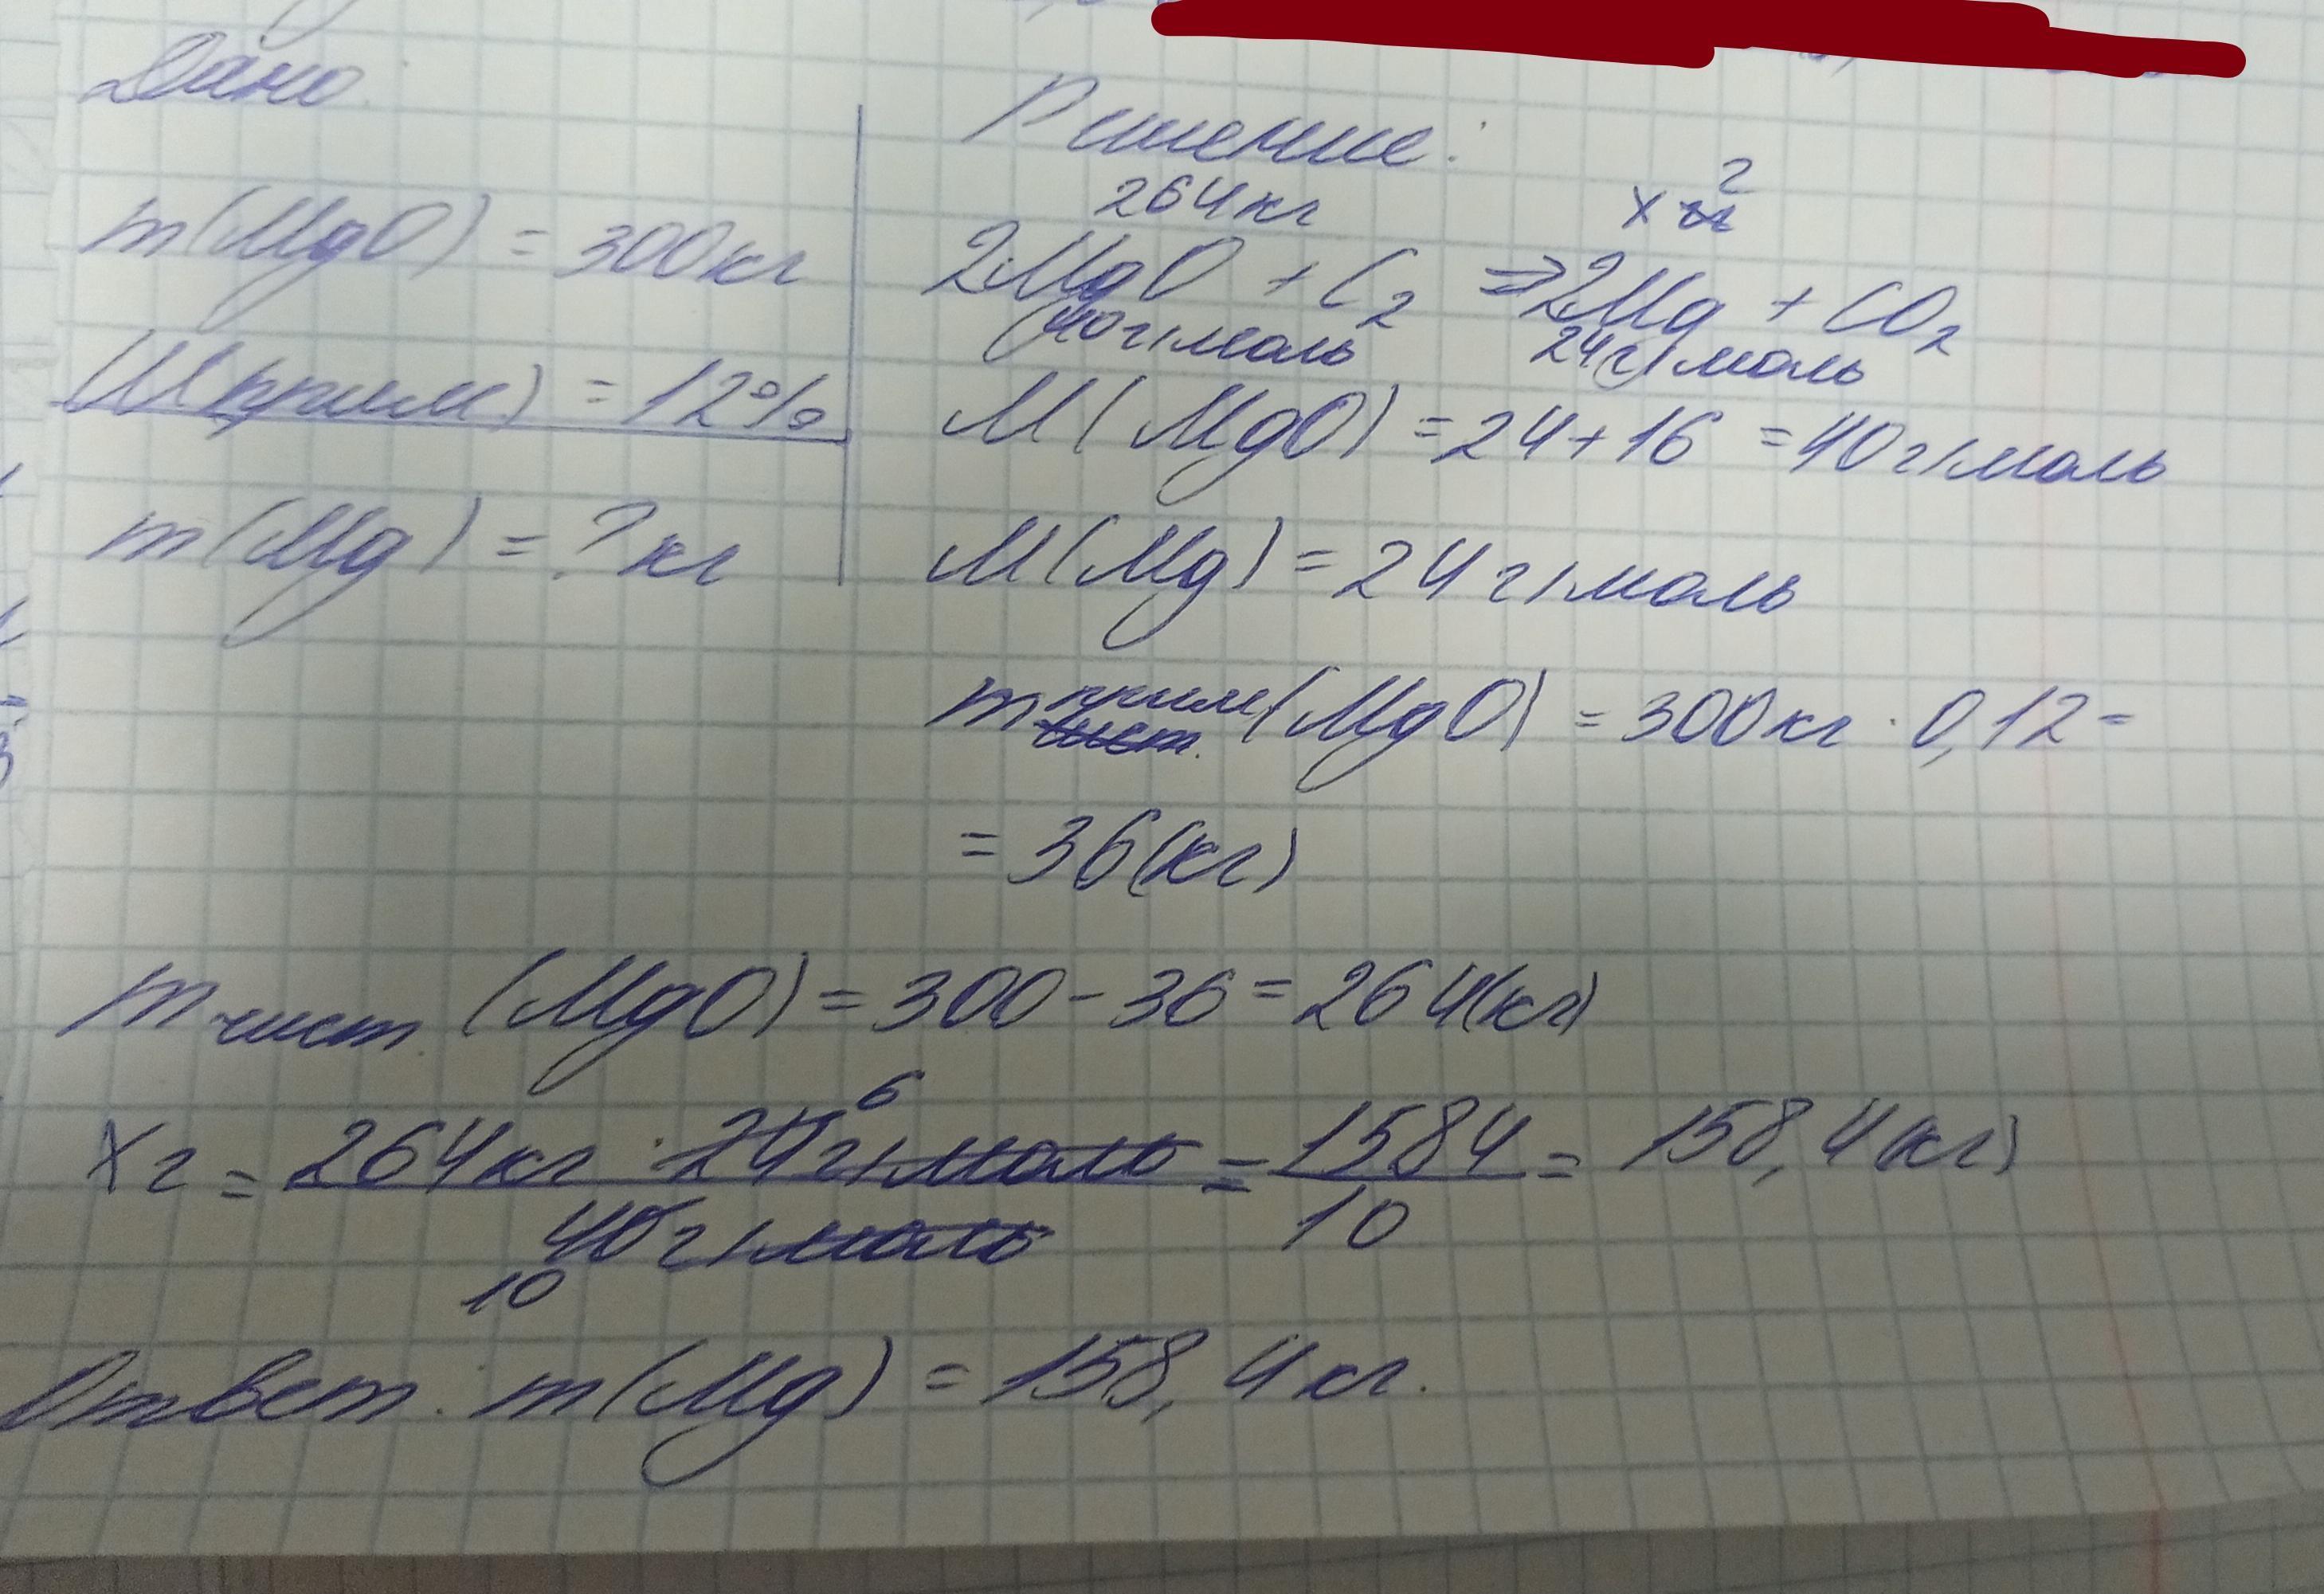 Дано
m(MgO) = 300кг
W(прим) = 12%
m(Mg) = ? кг
Решение:
264кг x г
2MgO + C2 => 2Mg + CO2
40г/моль 24г/моль
M(MgO) = 24+16 = 40г/моль
M(Mg) = 24г/моль
m прим(MgO) = 300кг · 0,12 =
= 36(кг)
m чист. (MgO) = 300 - 36 = 264(кг)
6
xг = 264кг · 24г/моль = 1584 = 158,4кг)
40г/моль 10
10
Ответ: m(Mg) = 158,4кг.